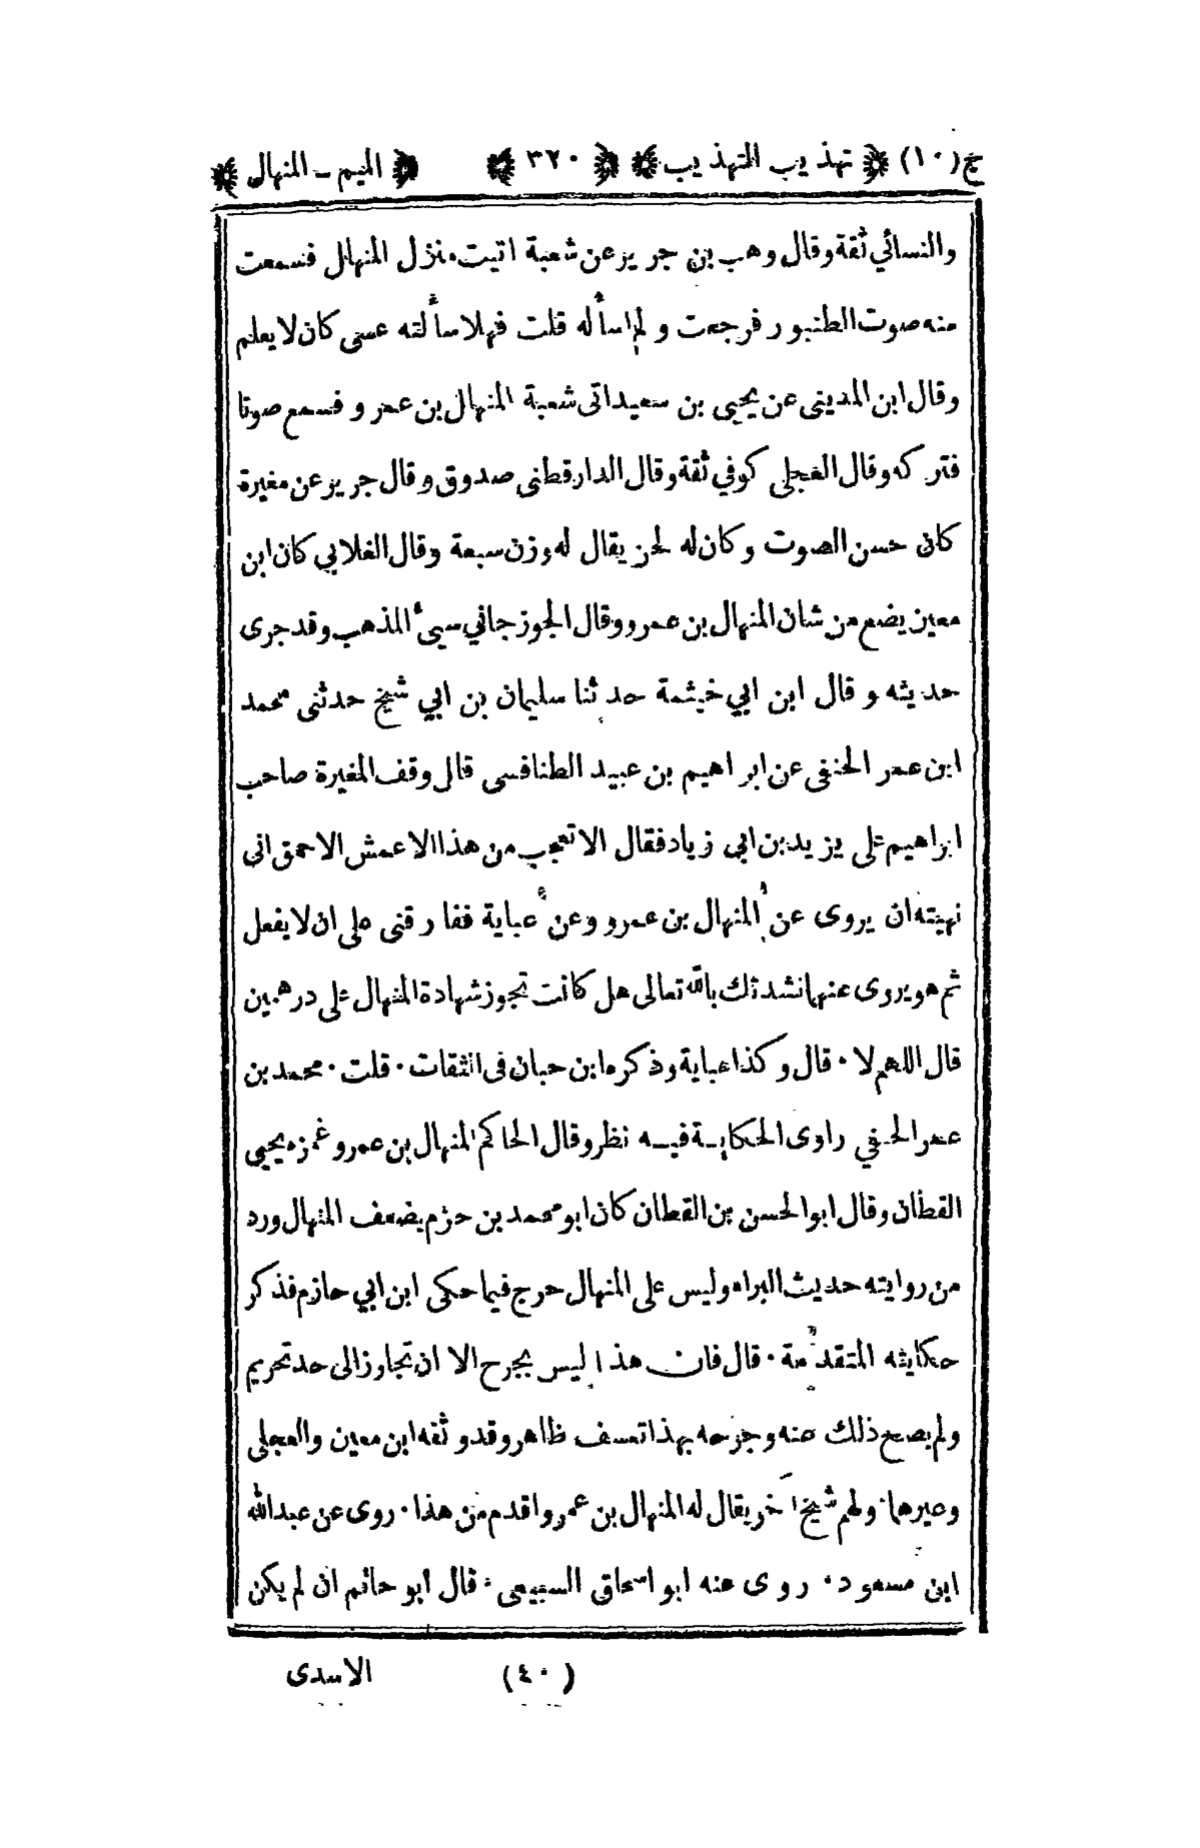 ج(١٠) تهذيب التهذيب ٣٢٠ الميم - المنهال
والنسائي ثقة وقال وهب بن جرير عن شعبة اتيت منزل المنهال فسمعت
منه صوت الطنبور فرجعت و لم اسأله قلت فهلا سألته عسى كان لا يعلم
وقال ابن المديني عن يحيى بن سعيد اتى شعبة المنهال بن عمر و فسمع صوتا
فتركه وقال العجلي كوفي ثقة وقال الدارقطني صدوق وقال جرير عن مغيرة
كان حسن الصوت وكان له لحن يقال له وزن سبعة وقال الغلابي كان ابن
معين يضع من شان المنهال بن عمرو وقال الجوزجاني سيئ المذهب وقد جرى
حديثه و قال ابن ابي خيثمة حدثنا سليمان بن ابي شيخ حدثنى محمد
ابن عمر الحنفى عن ابراهيم بن عبيد الطنافسى قال وقف المغيرة صاحب
ابراهيم على يزيد بن ابى زياد فقال الا تعجب من هذا الاعمش الاحمق انى
نهيته ان يروى عن المنهال بن عمرو وعن عباية ففارقنى على ان لا يفعل
ثم هو يروى عنهما نشدتك بالله تعالى هل كانت تجوز شهادة المنهال على درهمين
قال اللهم لا · قال وكذا عباية وذكره ابن حبان فى الثقات · قلت · محمد بن
عمر الحنفي راوى الحكاية فيه نظر وقال الحاكم المنهال بن عمرو غمزه يحيى
القطان وقال ابو الحسن بن القطان كان ابو محمد بن حزم يضعف المنهال ورد
من روايته حديث البراء وليس على المنهال حرج فيما حكى ابن ابي حازم فذكر
حكايته المتقدمة · قال فان هذا ليس بجرح الا ان تجاوز الى حد تحريم
ولم يصح ذلك عنه وجرحه بهذا تعسف ظاهر وقد وثقه ابن معين والعجلى
وغيرهما · ولهم شيخ آخر يقال له المنهال بن عمرو اقدم من هذا · روى عن عبدالله
ابن مسعود · روى عنه ابو اسحاق السبيعى · قال ابو حاتم ان لم يكن
(٤٠) الاسدى